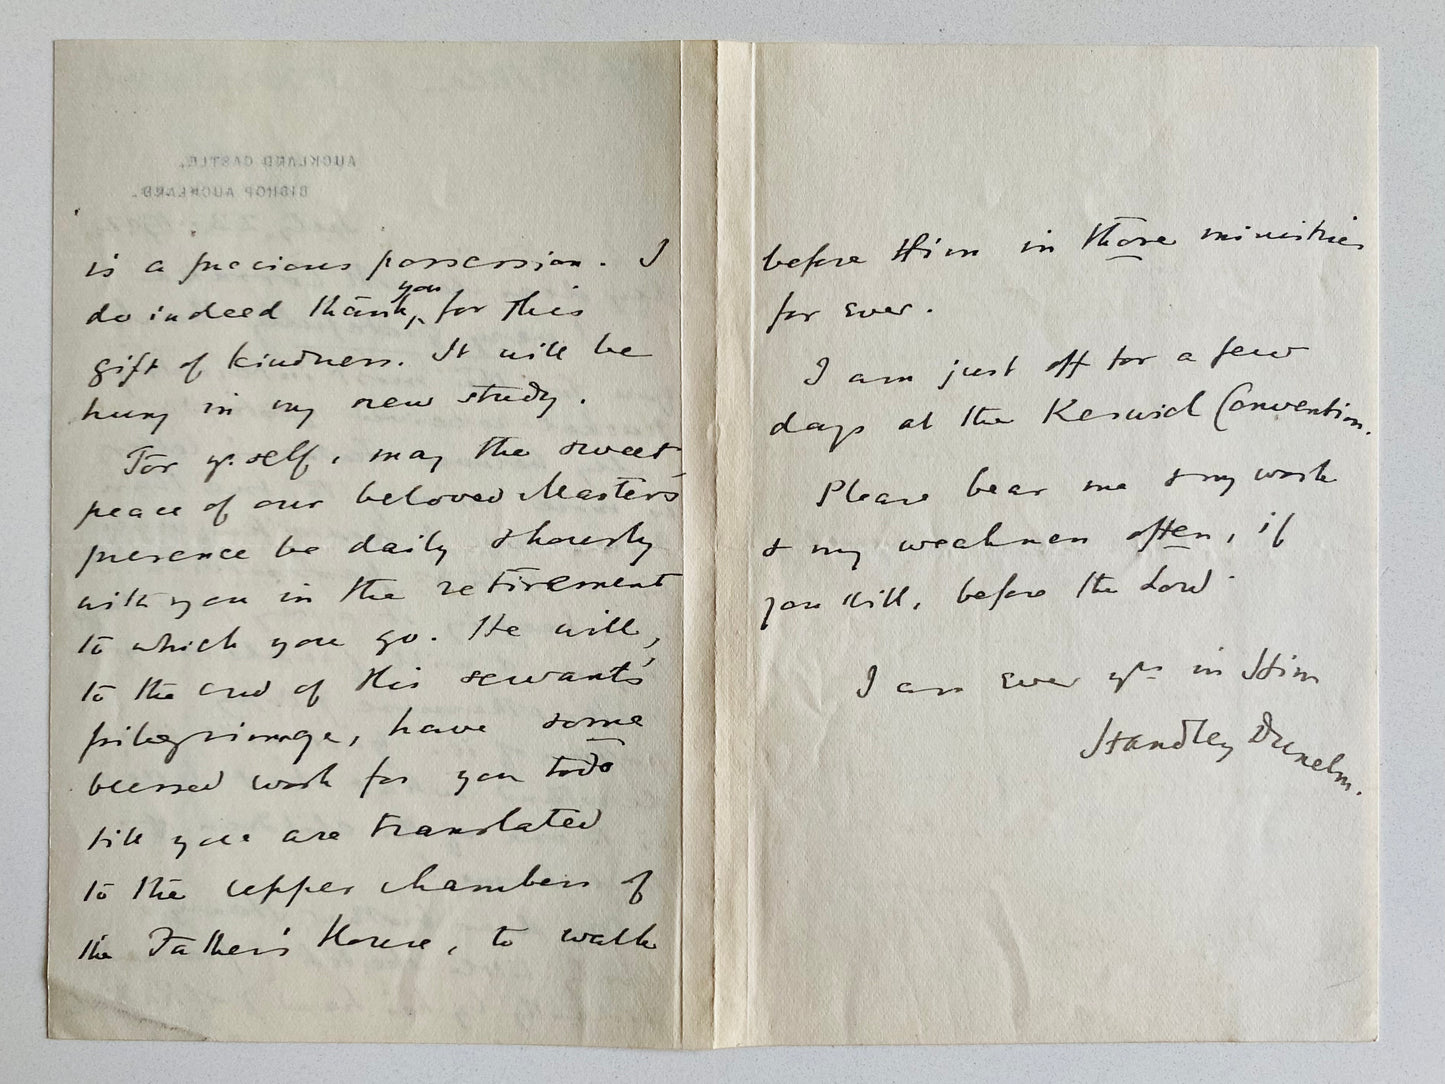 AUCKLAND CASTLE,
BISHOP AUCKLAND.
is a precious possession. I
do indeed thank you for this
gift of kindness. It will be
hung in my new study.
For yr. self, may the sweet
peace of our beloved Master's
presence be daily & hourly
with you in the retirement
to which you go. He will,
to the end of His servant's
pilgrimage, have some
blessed work for you to do
till you are translated
to the upper chambers of
the Father's House, to walk
before Him in those ministries
for ever.
I am just off for a few
days at the Keswick Convention.
Please bear me & my work
& my weakness often, if
you will, before the Lord.
I am ever yrs in Him
Handley Dunelm.